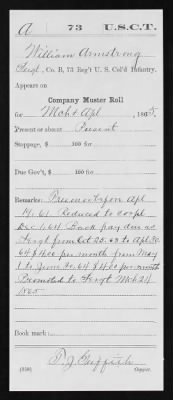 A 73 U.S.C.T.
William Armstrong
Sergt., Co. B, 73 Reg't U. S. Col'd Infantry.
Appears on
Company Muster Roll
for Mch & Apl, 1865.
Present or absent Present
Stoppage, $ 100 for
Due Gov't, $ 100 for
Remarks: Apl
Reduced to corpl
Dec 1, 64 Back pay due as
Sergt from Oct 25, 63 to Apl 30
64 $4.00 per month from May
1 to June 30, 64 $4.00 per month
Promoted to Sergt Mch 24
1865
Book mark:
Copyist.
(358)